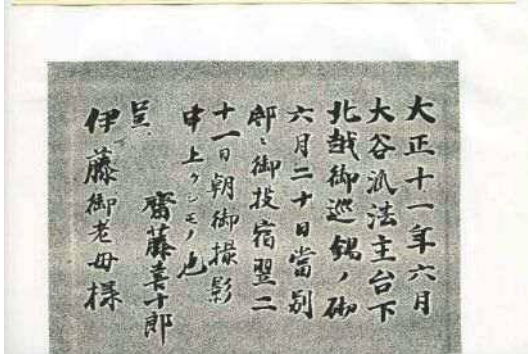 大正十一年六月
大谷派法主台下
北越御巡錫ノ砌
六月二十日當別
邸ニ御投宿翌二
十一日朝御撮影
申上ケシモノ也
齋藤喜十郎
呈
伊藤御老母様